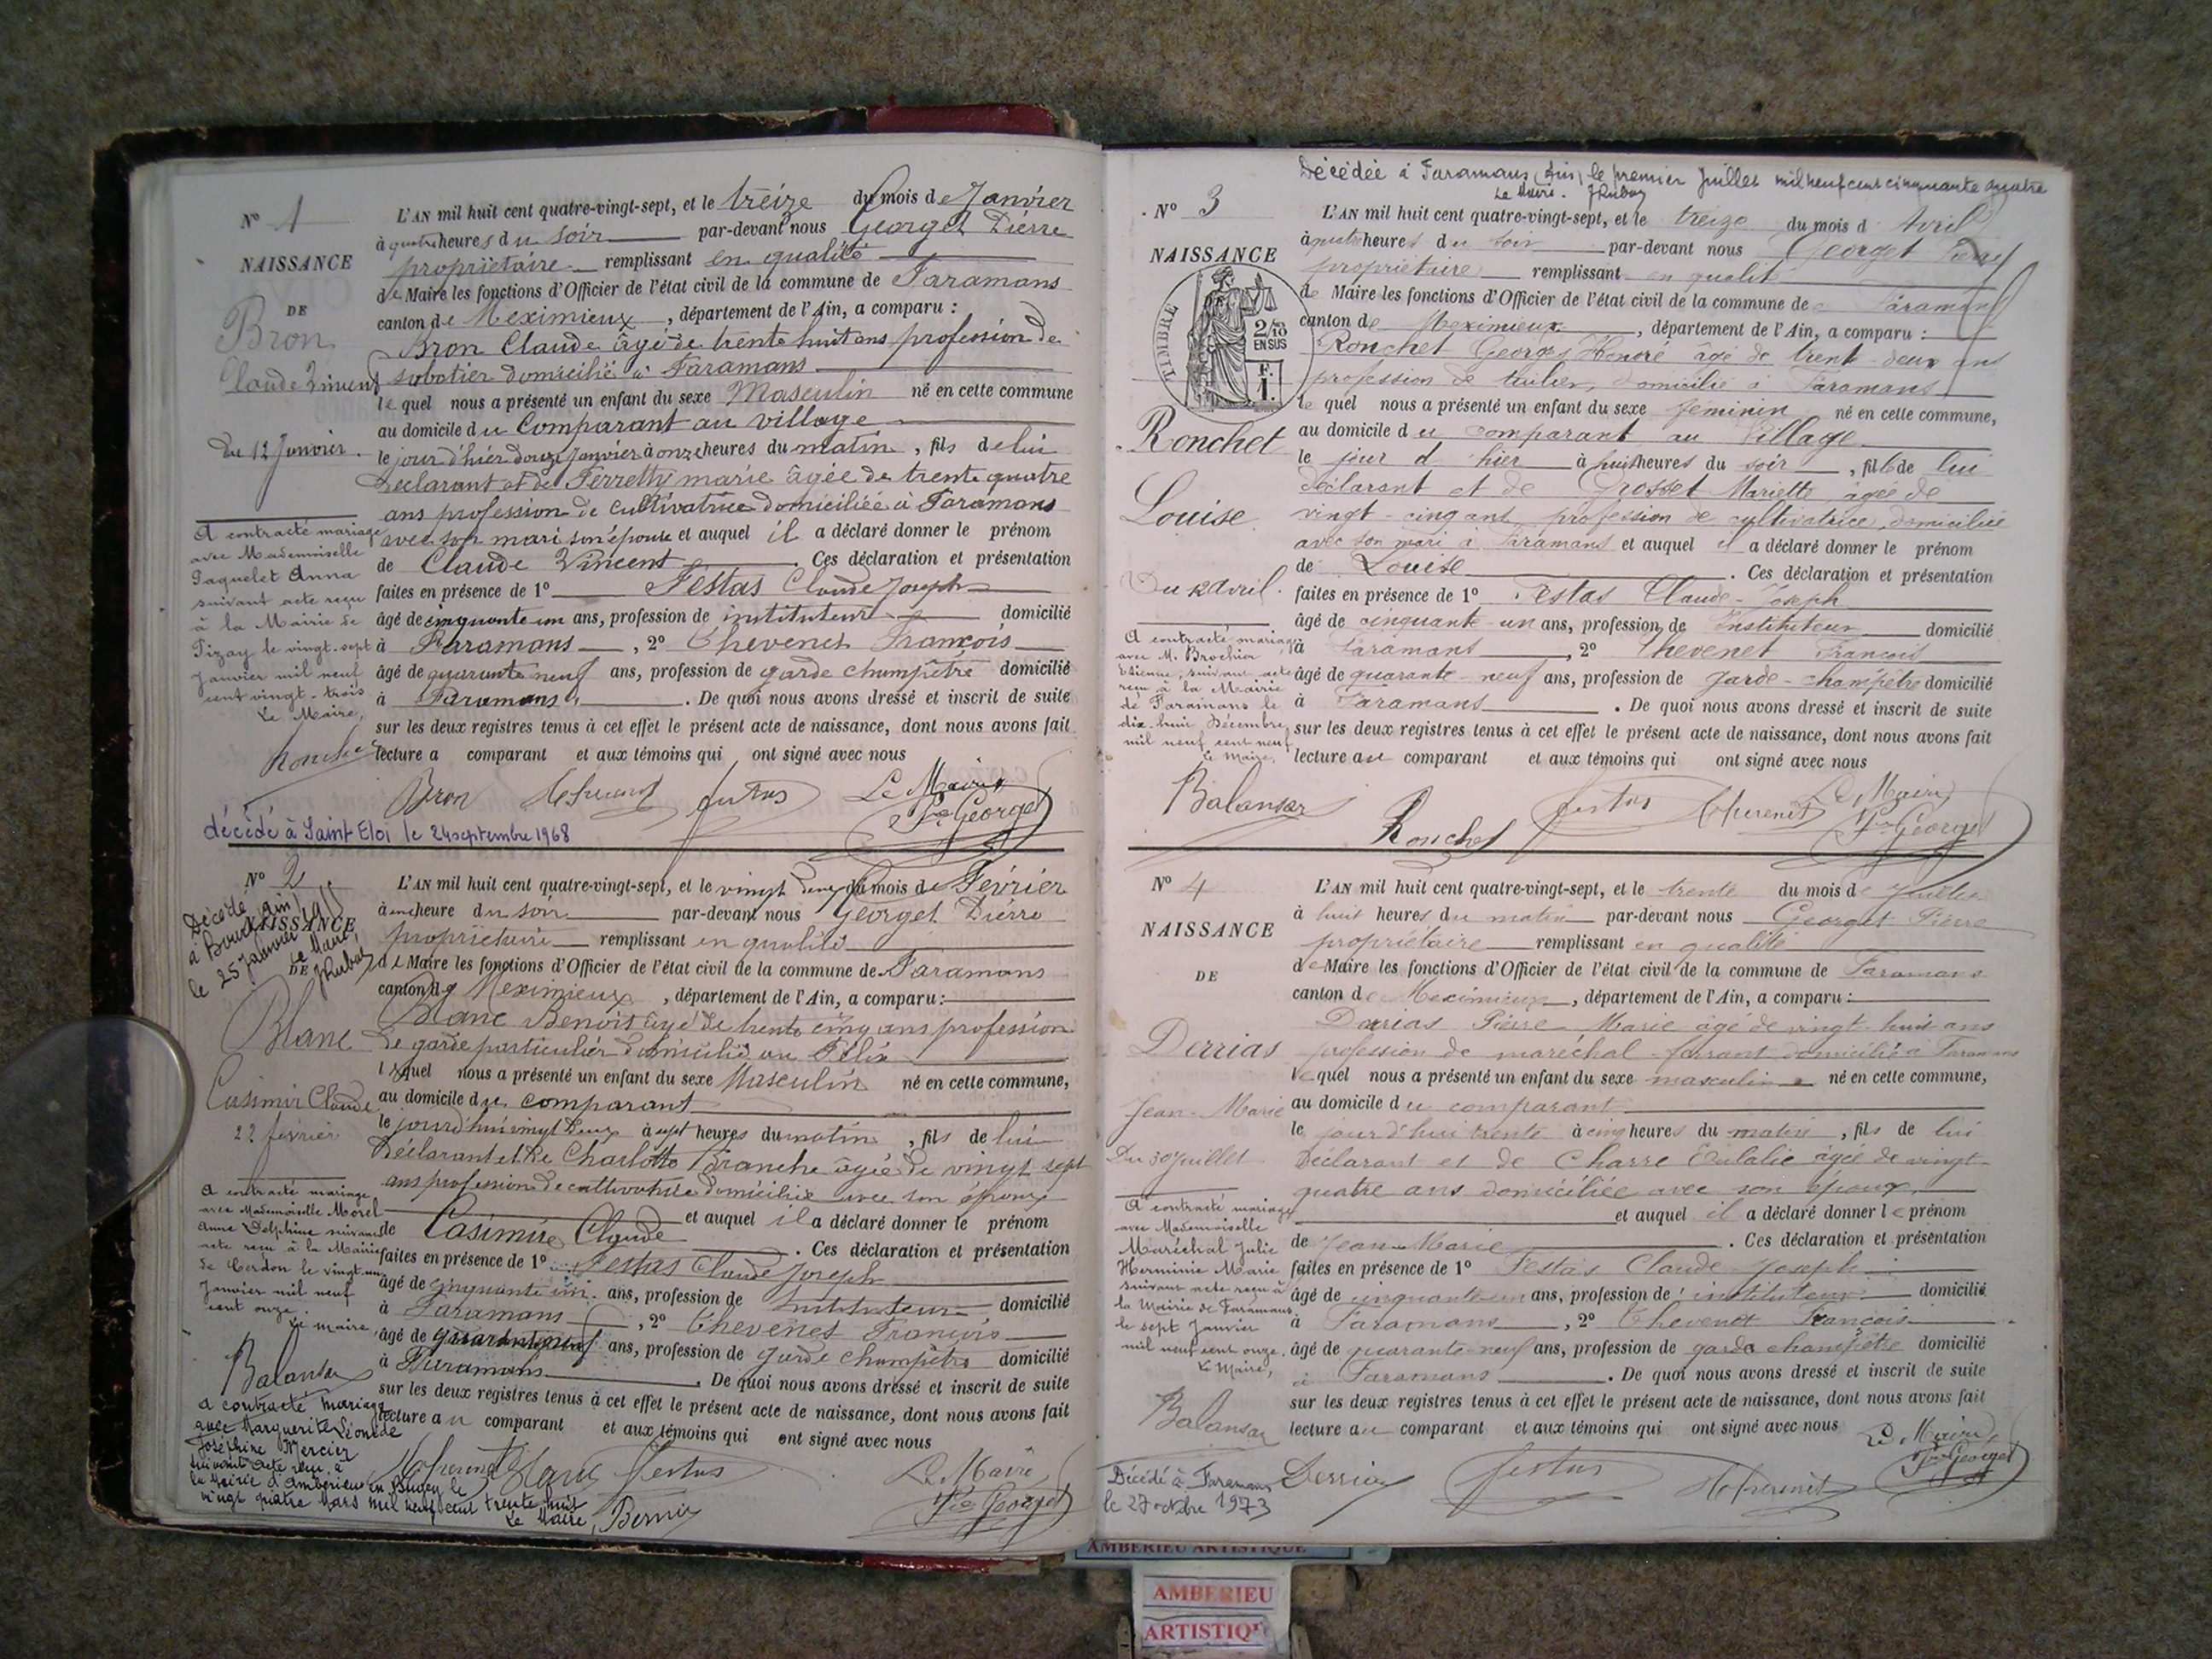 N° 1
NAISSANCE
DE
Bron
Claude Vincent
du 12 Janvier.
A contracté mariage
avec Mademoiselle
Paquelet Anna
suivant acte reçu
à la Mairie de
Pizay le vingt-sept
Janvier mil neuf
cent vingt-trois
Le Maire,
L'AN mil huit cent quatre-vingt-sept, et le treize du mois de Janvier
à quatre heures du soir par-devant nous Georget Pierre
propriétaire remplissant en qualité
de Maire les fonctions d'Officier de l'état civil de la commune de Faramans
canton de Meximieux, département de l'Ain, a comparu :
Bron Claude âgé de trente huit ans profession de
sabotier domicilié à Faramans
lequel nous a présenté un enfant du sexe Masculin né en cette commune
au domicile du Comparant au village
le jour d'hier douze Janvier à onze heures du matin, fils de lui
Déclarant et de Perretty marie âgée de trente quatre
ans profession de Cultivatrice domiciliée à Faramans
avec son mari son épouse et auquel il a déclaré donner le prénom
de Claude Vincent. Ces déclaration et présentation
faites en présence de 1° Festas Claude Joseph
âgé de cinquante un ans, profession de instituteur domicilié
à Faramans, 2° Chevenet François
âgé de quarante neuf ans, profession de garde champêtre domicilié
à Faramans. De quoi nous avons dressé et inscrit de suite
sur les deux registres tenus à cet effet le présent acte de naissance, dont nous avons fait
lecture a comparant et aux témoins qui ont signé avec nous
Bron Chevenet Festas Le Maire
Pre Georget
décédé à Saint Eloi le 24 septembre 1968
N° 2
NAISSANCE
DE
Décédé
à (Ain)
le 25 Janvier
Le Maire,
Blanc
Casimir Claude
22 février
A contracté mariage
avec Mademoiselle Morel
Anne Delphine suivant
acte reçu à la Mairie
de Cerdon le vingt-un
Janvier mil neuf
cent onze.
Le maire,
Balansar
A contracté mariage
avec Marguerite Léonide
Joséphine Mercier
suivant acte reçu à
la Mairie d'Ambérieu en Bugey le
vingt quatre Mars mil neuf cent trente huit
Le Maire,
L'AN mil huit cent quatre-vingt-sept, et le vingt deux du mois de Février
à une heure du soir par-devant nous Georget Pierre
propriétaire remplissant en qualité
de Maire les fonctions d'Officier de l'état civil de la commune de Faramans
canton de Meximieux, département de l'Ain, a comparu :
Blanc Benoit âgé de trente cinq ans profession
de garde particulier domicilié au Félix
lequel nous a présenté un enfant du sexe Masculin né en cette commune,
au domicile du comparant
le jourd'hui vingt deux à sept heures du matin, fils de lui
Déclarant et de Charlotte Branche âgée de vingt sept
ans profession de cultivatrice domiciliée avec son époux
et auquel il a déclaré donner le prénom
de Casimire Claude. Ces déclaration et présentation
faites en présence de 1° Festas Claude Joseph
âgé de cinquante un ans, profession de Instituteur domicilié
à Faramans, 2° Chevenet François
âgé de quarante neuf ans, profession de garde champêtre domicilié
à Faramans. De quoi nous avons dressé et inscrit de suite
sur les deux registres tenus à cet effet le présent acte de naissance, dont nous avons fait
lecture au comparant et aux témoins qui ont signé avec nous
Chevenet Blanc Festas Le Maire
Pre Georget
Décédée à Faramans (Ain) le premier Juillet mil neuf cent cinquante quatre
Le Maire.
N° 3
NAISSANCE
TIMBRE
2/10
EN SUS
F.
1.
Ronchet
Louise
Du 12 avril.
A contracté mariage
avec M. Brochier
Etienne, suivant acte
reçu à la Mairie
de Faramans le
dix-huit Décembre
mil neuf cent neuf
Le Maire,
Balansar
L'AN mil huit cent quatre-vingt-sept, et le treize du mois d Avril
à quatre heures du soir par-devant nous Georget Pierre
propriétaire remplissant en qualité
de Maire les fonctions d'Officier de l'état civil de la commune de Faramans
canton de Meximieux, département de l'Ain, a comparu :
Ronchet Georges Honoré âgé de trent-deux ans
profession de tuilier, domicilié à Faramans
le quel nous a présenté un enfant du sexe féminin né en cette commune,
au domicile du comparant au Village
le jour d'hier à huit heures du soir, fille de lui
déclarant et de Grosset Mariette âgée de
vingt-cinq ans, profession de cultivatrice, domiciliée
avec son mari à Faramans et auquel il a déclaré donner le prénom
de Louise. Ces déclaration et présentation
faites en présence de 1° Festas Claude-Joseph
âgé de cinquante-un ans, profession de Instituteur domicilié
à Faramans, 2° Chevenet François
âgé de quarante-neuf ans, profession de garde-champêtre domicilié
à Faramans. De quoi nous avons dressé et inscrit de suite
sur les deux registres tenus à cet effet le présent acte de naissance, dont nous avons fait
lecture au comparant et aux témoins qui ont signé avec nous
Ronchet Festas Chevenet Le Maire
Pre Georget
N° 4
NAISSANCE
DE
Derrias
Jean-Marie
Du 30 Juillet
A contracté mariage
avec Mademoiselle
Maréchal Julie
Herminie Marie
suivant acte reçu à
la Mairie de Faramans
le sept Janvier
mil neuf cent onze.
Le Maire,
Balansar
Décédé à Faramans
le 27 octobre 1973
L'AN mil huit cent quatre-vingt-sept, et le trente du mois de Juillet
à huit heures du matin par-devant nous Georget Pierre
propriétaire remplissant en qualité
de Maire les fonctions d'Officier de l'état civil de la commune de Faramans
canton de Meximieux, département de l'Ain, a comparu :
Derrias Pierre Marie âgé de vingt-huit ans
profession de maréchal-ferrant domicilié à Faramans
lequel nous a présenté un enfant du sexe masculin né en cette commune,
au domicile du comparant
le jourd'hui trente à cinq heures du matin, fils de lui
Déclarant et de Charre Eulalie âgée de vingt-
quatre ans domiciliée avec son époux,
et auquel il a déclaré donner le prénom
de Jean-Marie. Ces déclaration et présentation
faites en présence de 1° Festas Claude-Joseph
âgé de cinquante-un ans, profession de instituteur domicilié
à Faramans, 2° Chevenet François
âgé de quarante-neuf ans, profession de garde champêtre domicilié
à Faramans. De quoi nous avons dressé et inscrit de suite
sur les deux registres tenus à cet effet le présent acte de naissance, dont nous avons fait
lecture au comparant et aux témoins qui ont signé avec nous
Derrias Festas Chevenet Le Maire
Pre Georget
AMBERIEU ARTISTIQUE
AMBERIEU
ARTISTIQU